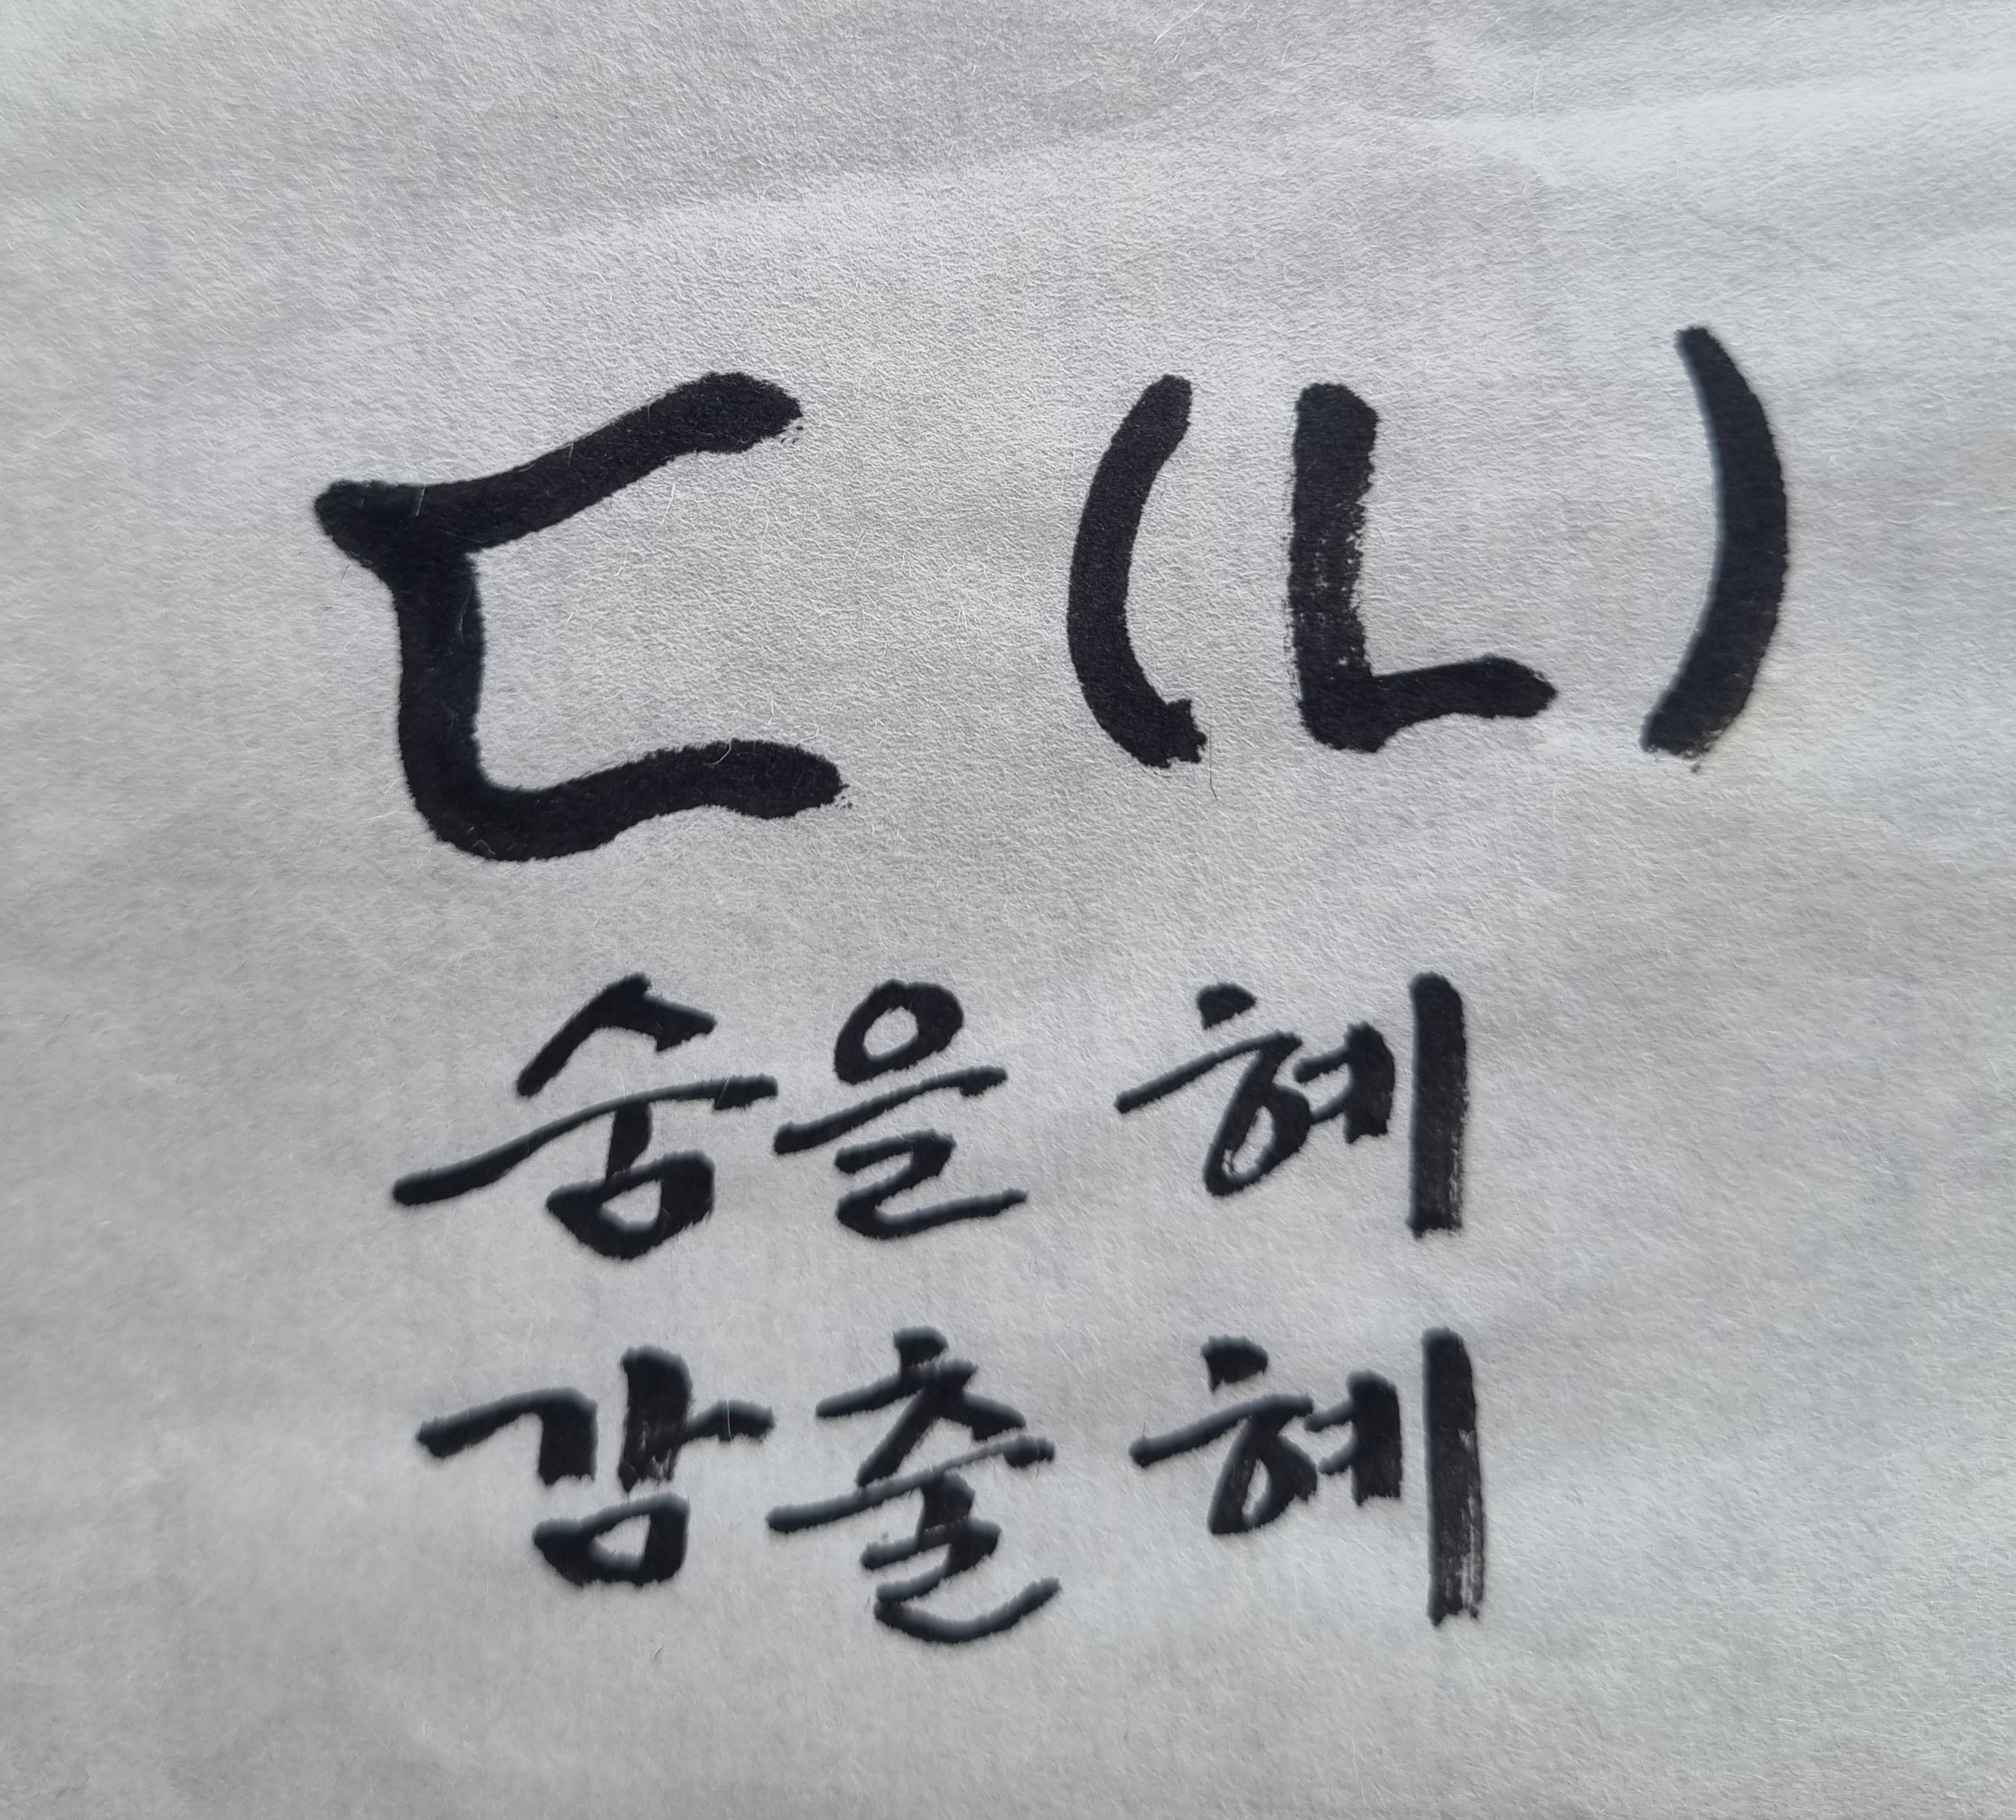 匸 (ㄴ)
숨을 혜
감출 혜